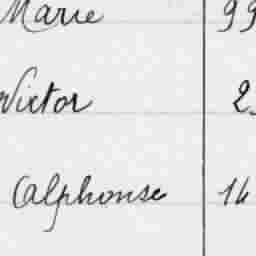 Marie 99
Victor 2
Alphonse 14